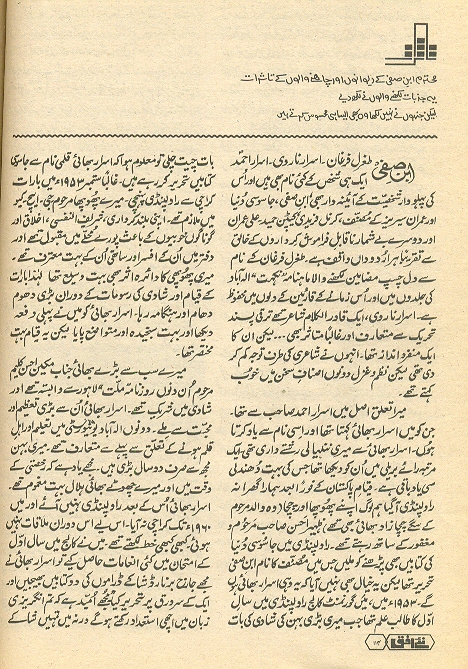 محترم ابن صفی کے دیوانوں اور چاہنے والوں کے تاثرات
یہ جذبات لکھنے والوں نے لکھ دیے
لیکن جنہوں نے نہیں لکھا وہ بھی ایسا ہی محسوس کرتے ہیں
ابن صفی طغرل فرغان۔ اسرار ناروی۔ اسرار احمد
ایک ہی شخص کے کئی نام بھی ہیں اور اُس
کی پہلودار شخصیت کے آئینہ دار بھی! ابن صفی، جاسوسی دُنیا
اور عمران سیریز کے مصنف، کرنل فریدی کیپٹن حمید، علی عمران
اور دوسرے بے شمار ناقابلِ فراموش کرداروں کے خالق
سے تقریباً ہر اُردو داں واقف ہے۔ طغرل فرغان کے نام
سے دل چسپ مضامین لکھنے والا ماہنامہ نکہت "الٰہ آباد
کی جلدوں میں اور اُس زمانے کے قارئین کے دلوں میں محفوظ
ہے۔ اسرار ناروی، ایک قادر الکلام شاعر تھے ترقی پسند
تحریک سے متعارف اور غالباً متاثر بھی... لیکن ان کا
ایک منفرد انداز تھا۔ انہوں نے شاعری کی طرف توجہ کم کر
دی تھی لیکن نظم و غزل دونوں اصنافِ سخن میں خوب
کہتے تھے۔
میرا تعلق اصل میں اسرار احمد صاحب سے تھا۔
جن کو میں اسرار بھائی کہتا تھا اور اسی نام سے یاد کرتا
ہوں۔ اسرار بھائی سے میری ننھیالی رشتے داری تھی، ایک
مرتبہ رائے بریلی میں اُن کو دیکھا تھا جس کی بہت دُھندلی
سی یاد باقی ہے۔ قیامِ پاکستان کے فوراً بعد ہمارا گھرانہ
راولپنڈی آ گیا ہم لوگ اپنے پھوپھا اور چچا (وہ والد مرحوم
کے سگے چچا زاد بھائی بھی تھے) ظہیر احسن صاحب مرحوم و
مغفور کے ساتھ رہتے تھے۔ راولپنڈی میں جاسوسی دُنیا
کی کتابیں بھی پڑھنے کو ملیں جس میں مصنف کا نام ابن صفی
تحریر تھا لیکن یہ خیال بھی نہیں آیا کہ یہ وہی اسرار بھائی ہوں
گے۔ ۱۹۵۳ء میں، میں گورنمنٹ کالج راولپنڈی میں سال
اوّل کا طالب علم تھا جب میری بڑی بہن کی شادی کی
بات چیت چلی تو معلوم ہوا کہ اسرار بھائی قلمی نام سے جاسوسی
کتابیں تحریر کر رہے ہیں۔ غالباً ستمبر ۱۹۵۳ء میں بارات
کراچی سے راولپنڈی پہنچی۔ میرے پھوپھا مرحوم جی۔ ایچ۔ کیو
میں ملازم تھے۔ اپنی بلند کرداری، شریف النفسی، اخلاق اور
گوناگوں خوبیوں کے باعث پورے محلے میں مقبول تھے اور
دفتر میں اُن کے افسر اور ساتھی اُن کے بہت معترف تھے۔
میری پھوپھی کا دائرہ اثر بھی بہت وسیع تھا لہٰذا بارات
کے قیام اور شادی کی رسومات کے دوران بڑی دھوم
دھام اور ہنگامہ رہا۔ اسرار بھائی کو میں نے پہلی دفعہ
دیکھا اور بہت سنجیدہ اور متواضع پایا لیکن یہ قیام بہت
مختصر تھا۔
میرے سب سے بڑے بھائی جناب مکین احسن کلیم
مرحوم اُن دنوں روزنامہ ملت لاہور سے وابستہ تھے اور
شادی میں شریک تھے۔ اسرار بھائی اُن سے بڑی تعظیم اور
محبت سے ملے۔ دونوں الٰہ آباد یونیورسٹی میں تعلیم اور اہل
قلم ہونے کے تعلق سے پہلے سے متعارف تھے۔ میری بہن
مجھ سے صرف دو سال بڑی ہیں۔ مجھے یاد ہے کہ رخصتی کے
وقت میں اور میرے چھوٹے بھائی ہلال بہت مغموم تھے
اسرار بھائی اُس کے بعد راولپنڈی نہیں آئے اور میں
۱۹۶۰ء تک کراچی نہ آیا۔ اس لیے اس دوران ملاقات نہیں
ہوئی، کبھی کبھی خط لکھتے تھے۔ میں نے کالج میں سال اوّل
کے امتحان میں کئی انعامات حاصل کیے تو اسرار بھائی نے
مجھے جارج برنارڈ شا کے ڈراموں کی دو کتابیں بھیجیں اور
ایک کے سرورق پر تحریر کیا "مجھے اُمید ہے کہ تم انگریزی
زبان میں اچھی استعداد رکھتے ہو گے ورنہ میں تمہیں شا کے
نئے افق